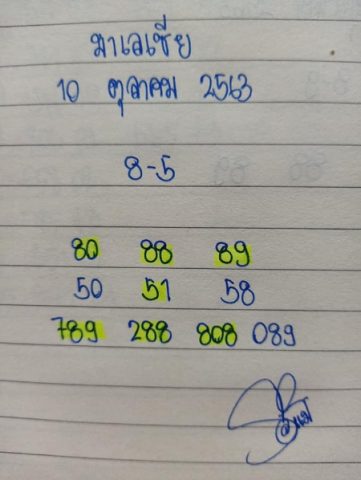 มาเลเซีย
10 ตุลาคม 2563
8-5
80 88 89
50 51 58
789 288 808 089